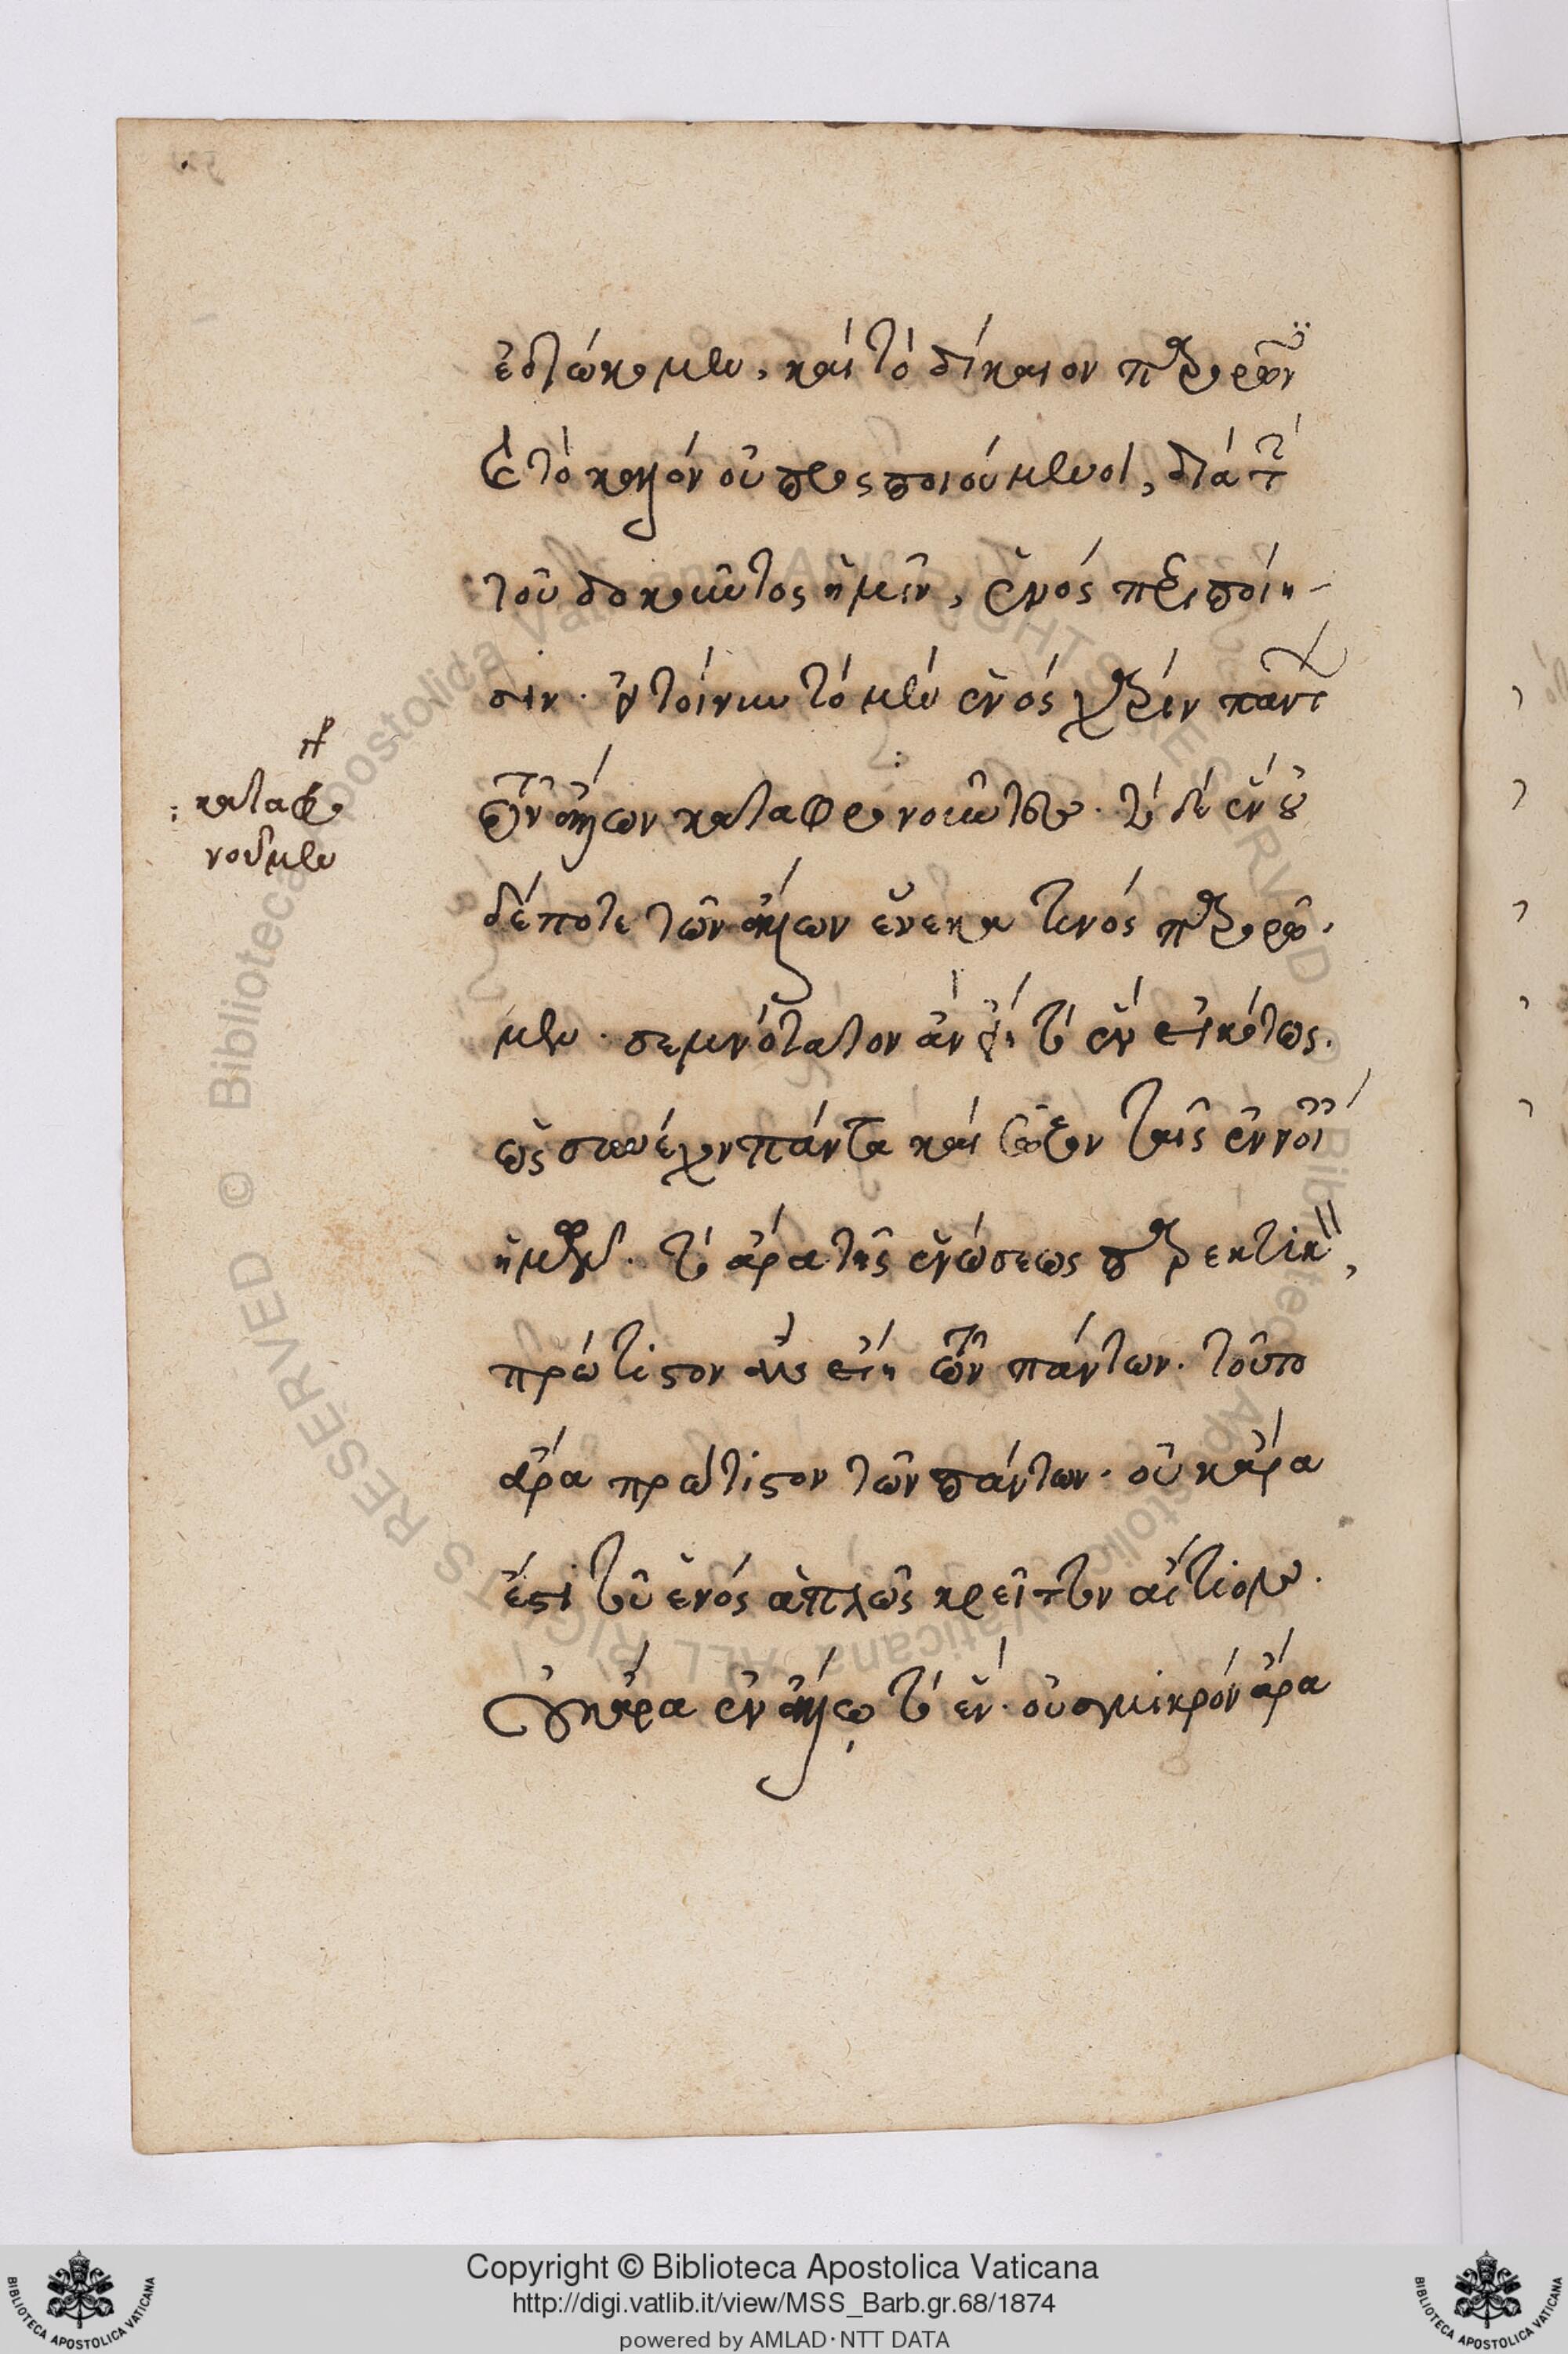 ἐδιώκομεν, καὶ τὸ δίκαιον παρορῶν
καὶ τὸ καλὸν οὐ προσποιούμενοι, διὰ τὴν
τοῦ δοκοῦντος ἡμῖν, ἑνὸς περιποίη-
σιν. εἰ τοίνυν τὸ μὲν ἑνὸς χάριν πάντες
τῶν ἄλλων καταφρονοῦντες. τὸ δὲ ἓν οὐ
δέποτε τῶν ἄλλων ἕνεκα τινὸς παρορῶ-
μεν. σεμνότατον ἂν εἴη τὸ ἓν εἰκότως.
ὡς συνέχον πάντα καὶ σῶζον ταῖς ἐννοίαις
ἡμῶν. τὸ ἄρα τῆς ἑνώσεως παρεκτικόν,
πρώτιστον ἂν εἴη τῶν πάντων. τοῦτο
ἄρα πρώτιστον τῶν πάντων. οὐκ ἄρα
ἐστὶ τοῦ ἑνὸς ἁπλῶς κρεῖττον αἴτιον.
οὐκ ἄρα ἐν ἄλλῳ τὸ ἕν. οὐ σμικρὸν ἄρα
καταφρο
νοῦμεν
Copyright © Biblioteca Apostolica Vaticana
http://digi.vatlib.it/view/MSS_Barb.gr.68/1874
powered by AMLAD·NTT DATA
BIBLIOTECA APOSTOLICA VATICANA
BIBLIOTECA APOSTOLICA VATICANA